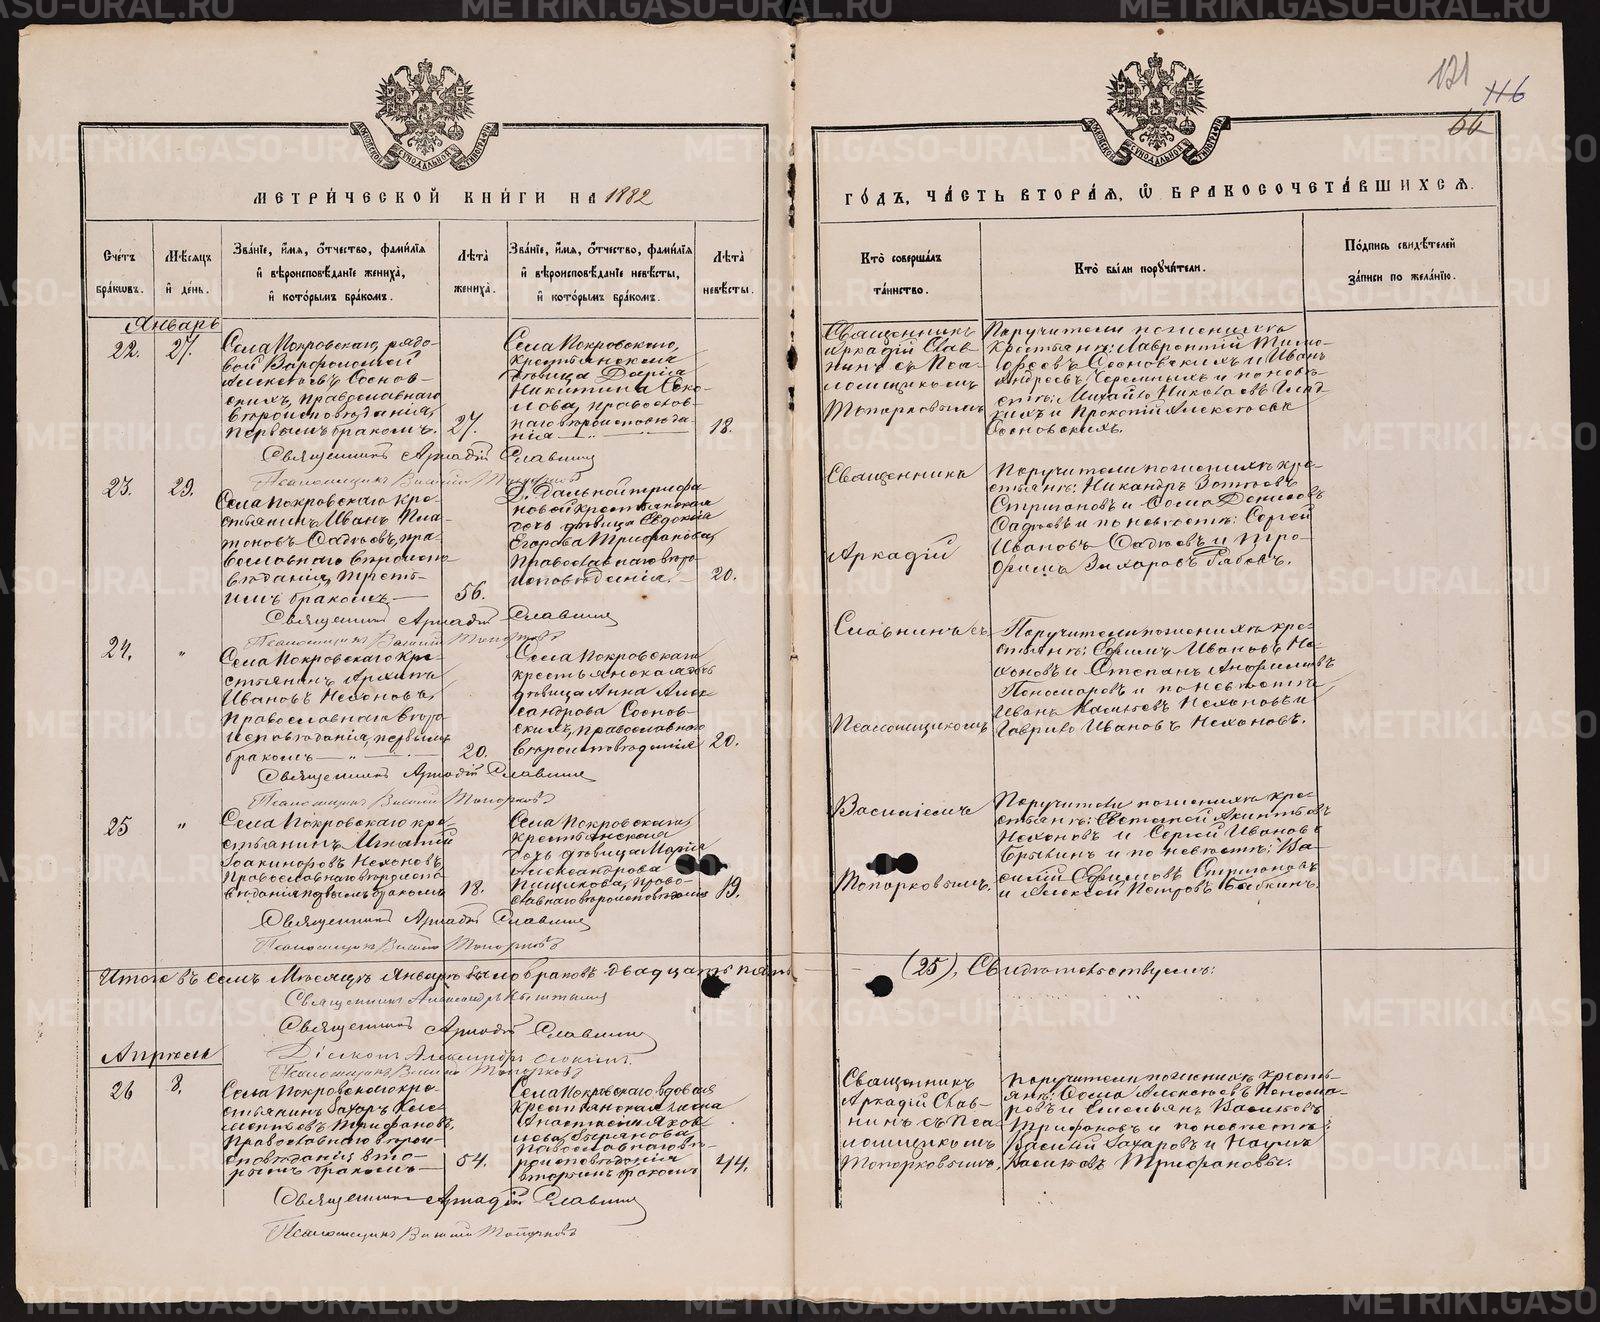 METRIKI.GASO-URAL.RU
121
116
66
МЕТРИ́ЧЕСКОЙ КНИ́ГИ НА 1882
ГО́ДЪ, ЧА́СТЬ ВТОРА́Я, Ѡ БРАКОСОЧЕТА́ВШИХСЯ.
Сче́тъ бра́кѡвъ.
Мѣ́сяцъ и де́нь.
Зва́ніе, и́мя, о́тчество, фами́лія и вѣроисповѣ́даніе жениха̀, и кото́рымъ бра́комъ.
Лѣ́та жениха̀.
Зва́ніе, и́мя, о́тчество, фами́лія и вѣроисповѣ́даніе невѣ́сты, и кото́рымъ бра́комъ.
Лѣ́та невѣ́сты.
Кто̀ соверша́лъ та́инство.
Кто̀ бы́ли поручи́тели.
По́дпись свидѣ́телей за́писи по жела́нію.
Январь
22.
27.
Села Покровскаго, рядо-
вой Варфоломей
Алексѣевъ Соснов-
скихъ, православнаго
вѣроисповѣданія,
первымъ бракомъ.
27.
Села Покровскаго,
крестьянская
дѣвица Дарья
Никитина Соко-
лова, православ-
наго вѣроисповѣда-
нія
18.
Священникъ
Аркадій Слав-
нинъ съ Пса-
ломщикомъ
Топорковымъ
Поручители по женихѣ
крестьяне: Лаврентій Тимо-
фѣевъ Сосновскихъ и Иванъ
Андреевъ Черемныхъ и по невѣ-
стѣ: Михайло Николаевъ
и Прокопій Алексѣевъ
Сосновскихъ.
Священникъ Аркадій Славнинъ
Псаломщикъ Василій Топорковъ
23.
29.
Села Покровскаго кре-
стьянинъ Иванъ Пла-
тоновъ Садѣевъ, пра-
вославнаго вѣроиспо-
вѣданія, треть-
имъ бракомъ.
56.
Д. Дальной Трифо-
новой крестьянская
дочь дѣвица Евдокія
Егорова Трифанова,
Православнаго вѣро-
исповѣданія.
20.
Священникъ
Аркадій
Поручители по женихѣ кре-
стьяне: Никандръ Зотѣевъ
Стригановъ и Ѳома Денисовъ
Садѣевъ и по невѣстѣ: Сергѣй
Ивановъ Садѣевъ и Тро-
фимъ Захаровъ Рябовъ.
Священникъ Аркадій Славнинъ
Псаломщикъ Василій Топорковъ
24.
"
Села Покровскаго кре-
стьянинъ Архипъ
Ивановъ Нехоновъ,
Православнаго вѣро-
исповѣданія, первымъ
бракомъ
20.
Села Покровскаго
крестьянская дочь
дѣвица Анна Алек-
сандрова Соснов-
скихъ, православнаго
вѣроисповѣданія
20.
Славнинъ съ
Псаломщикомъ
Поручители по женихѣ кре-
стьяне: Ефимъ Ивановъ Не-
хоновъ и Степанъ Анфимовъ
Пономаровъ и по невѣстѣ
Иванъ Нехоновъ и
Гаврило Ивановъ Нехоновъ.
Священникъ Аркадій Славнинъ
Псаломщикъ Василій Топорковъ
25
"
Села Покровскаго кре-
стьянинъ Игнатій
Іоакинфовъ Нехоновъ,
Православнаго вѣроиспо-
вѣданія первымъ бракомъ
18.
Села Покровскаго,
крестьянская
дочь дѣвица Марія
Александрова
Пищикова, право-
славнаго вѣроисповѣданія
19.
Василіемъ
Топорковымъ.
Поручители по женихѣ кре-
стьяне: Акинтѣевъ
Нехоновъ и Сергѣй Ивановъ
Брылинъ и по невѣстѣ: Ва-
силій Ефимовъ Стригановъ
и Алексѣй Петровъ Бабкинъ.
Священникъ Аркадій Славнинъ
Псаломщикъ Василій Топорковъ
Итого въ семъ Мѣсяцѣ Январѣ было браковъ двадцать пять
(25), Свидѣтельствуемъ:
Священникъ Александръ
Священникъ Аркадій Славнинъ
Діаконъ Александръ
Псаломщикъ Василій Топорковъ
Апрѣль
26
8.
Села Покровскаго кре-
стьянинъ Захаръ Кли-
ментьевъ Трифановъ,
Православнаго вѣрои-
сповѣданія вто-
рымъ бракомъ
54.
Села Покровскаго вдовая
крестьянская жена
Анастасія Яков-
лева
Православнаго вѣ-
роисповѣданія
вторымъ бракомъ
44.
Священникъ
Аркадій Слав-
нинъ съ Пса-
ломщикомъ
Топорковымъ.
Поручители по женихѣ кресть-
яне: Ѳома Алексѣевъ Понома-
ровъ и Емельянъ Васильевъ
Трифановъ и по невѣстѣ:
Василій Захаровъ и Наумъ
Васильевъ Трифановы.
Священникъ Аркадій Славнинъ
Псаломщикъ Василій Топорковъ